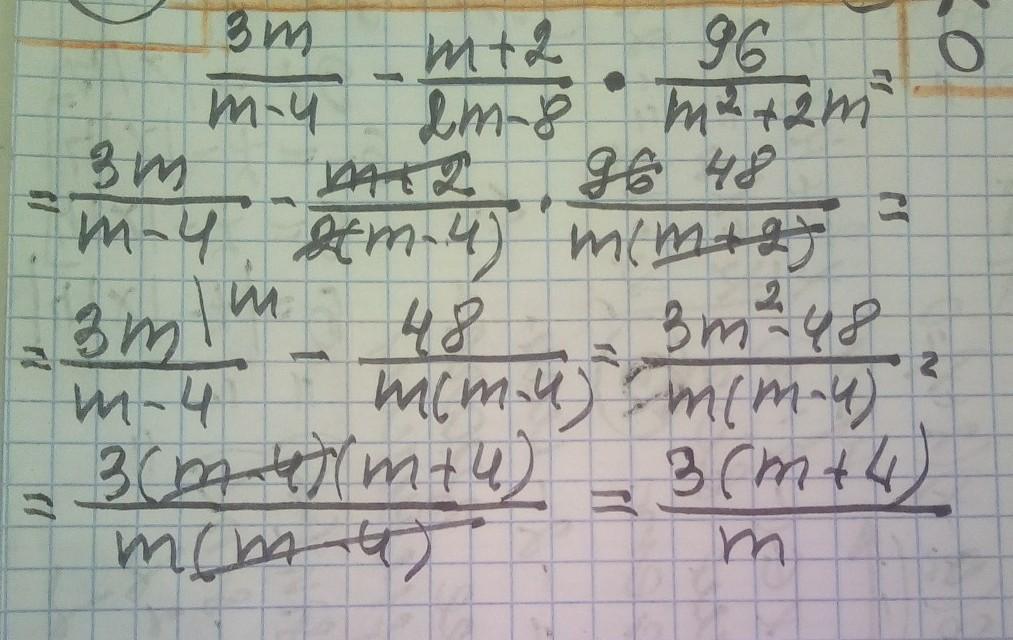 3m/(m-4) - (m+2)/(2m-8) • 96/(m²+2m) =
= 3m/(m-4) - (m+2)/(2(m-4)) · 96 48/(m(m+2)) =
= 3m\m/(m-4) - 48/(m(m-4)) = (3m²-48)/(m(m-4)) =
= 3(m-4)(m+4)/(m(m-4)) = 3(m+4)/m